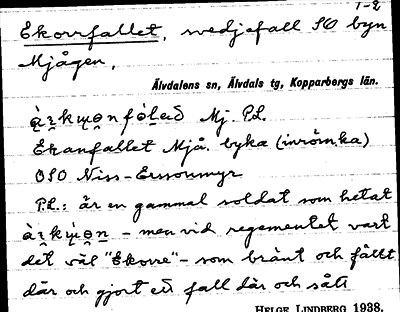 1-2
Ekorrfallet, svedjefall SO byn
Mjågen,
Älvdalens sn, Älvdals tg, Kopparbergs län.
Mj. P.L.
Ekanfallet Mjå. byka (inröm,ka)
OSO Niss-Erssonmyr
P.L.: är en gammal soldat som hetat
– men vid regementet vart
det väl "Ekorre" – som bränt och fällt
där och gjort ett fall där och sått
HELGE LINDBERG 1938.